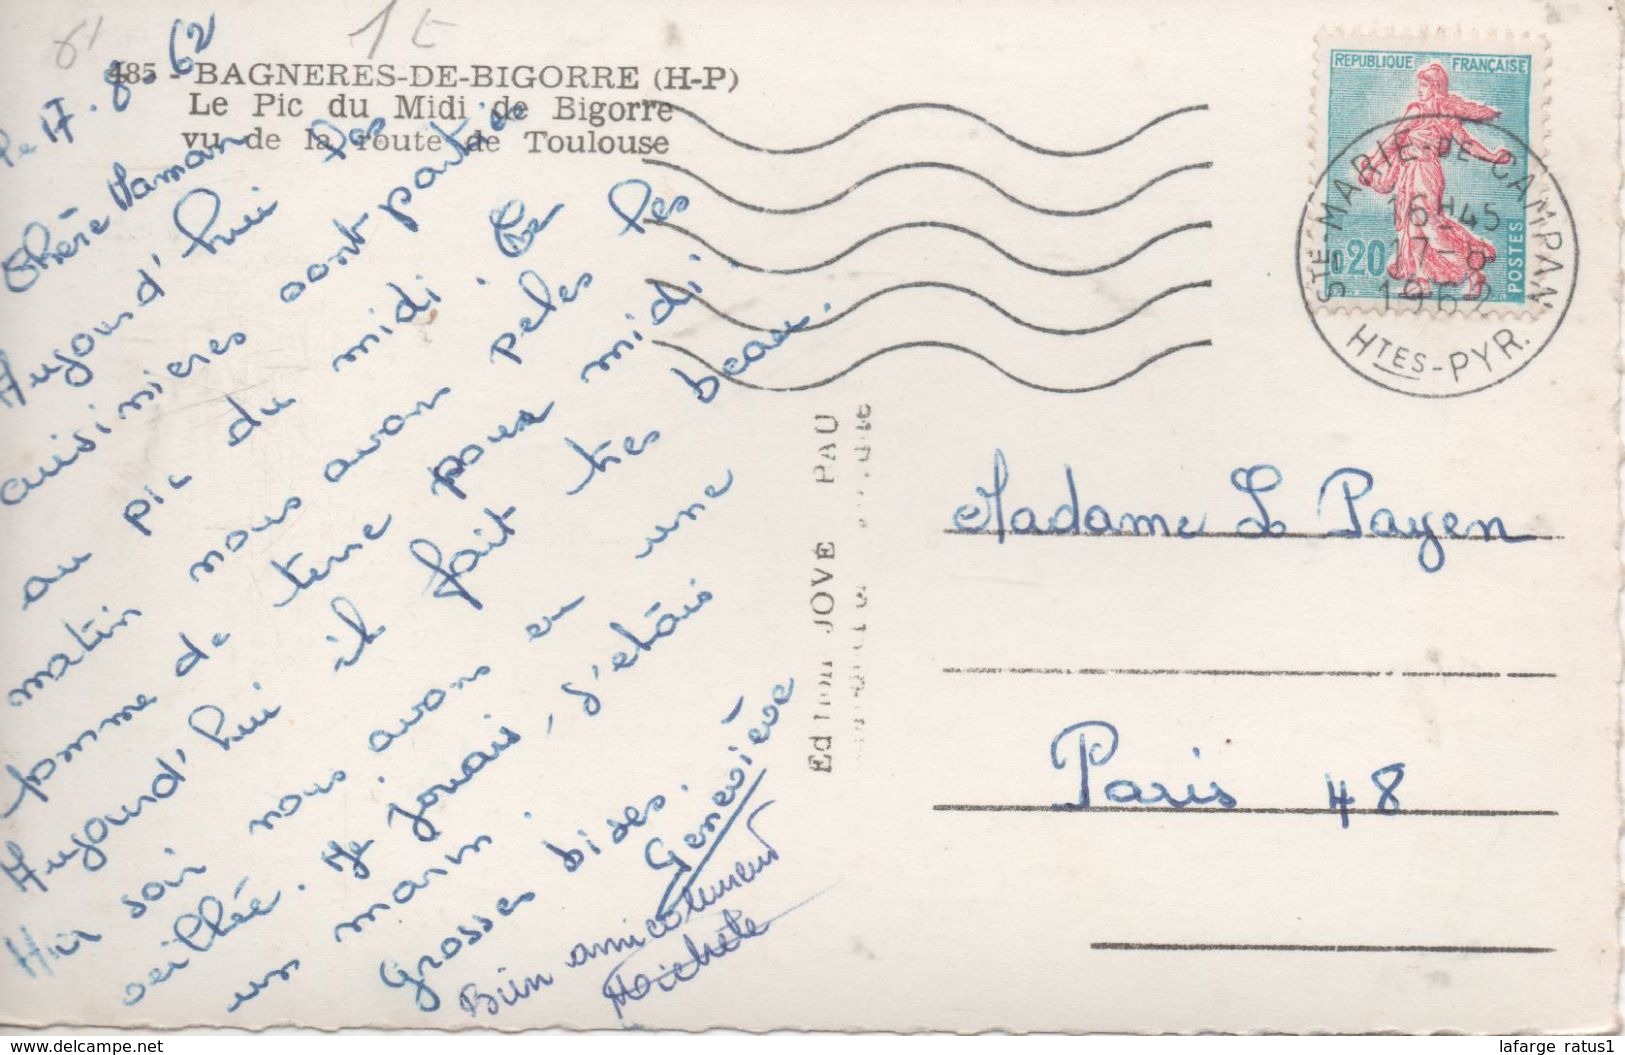 6'
1 E
485 - BAGNERES-DE-BIGORRE (H-P)
Le Pic du Midi de Bigorre
vu de la route de Toulouse
Le 17.8.62
Chère Maman
Aujourd'hui les
cuisinieres sont parties
au pic du midi. Ce
matin nous avon peles les
pomme de terre pour midi.
Aujourd'hui il fait tres beau.
Hier soir nous avons eu une
veillée. Je jouais, j'etais
un marin.
Grosses bises.
Geneviève
Bien amicalement
Michèle
Edition JOVÉ PAU
REPUBLIQUE FRANÇAISE
0,20
POSTES
STE-MARIE-DE-CAMPAN
16H45
17-8
1962
HTES-PYR.
Madame Le Payen
Paris 48
www.delcampe.net
lafarge ratus1